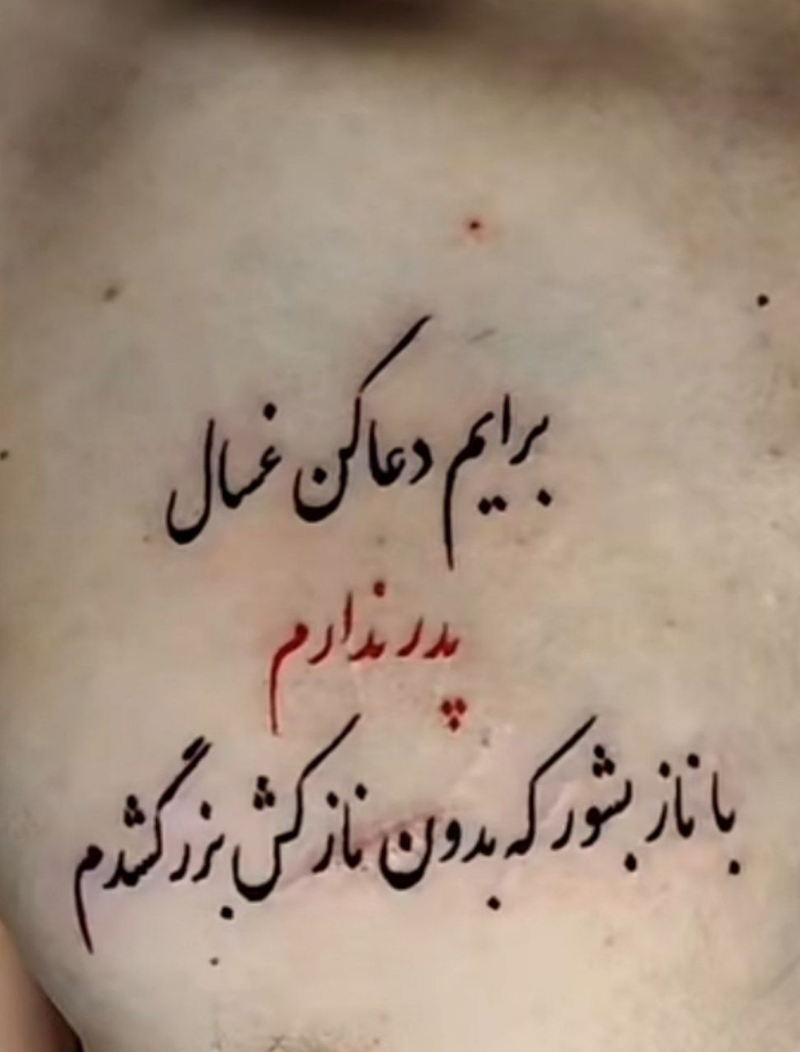 برایم دعا کن غسال
پدر ندارم
با ناز بشور که بدون ناز کش بزرگ شدم